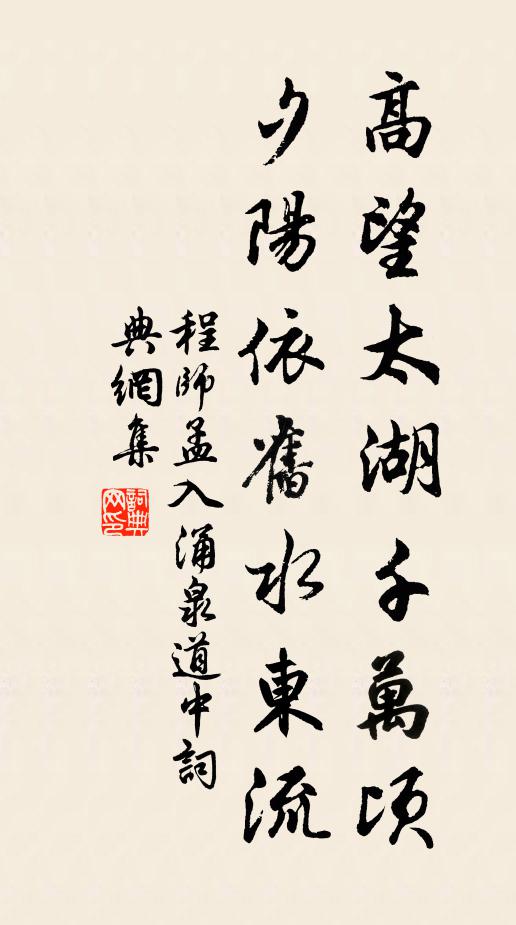 高望太湖千萬頃
夕陽依舊水東流
程師孟入涌泉道中詞
典網集
詞典網印